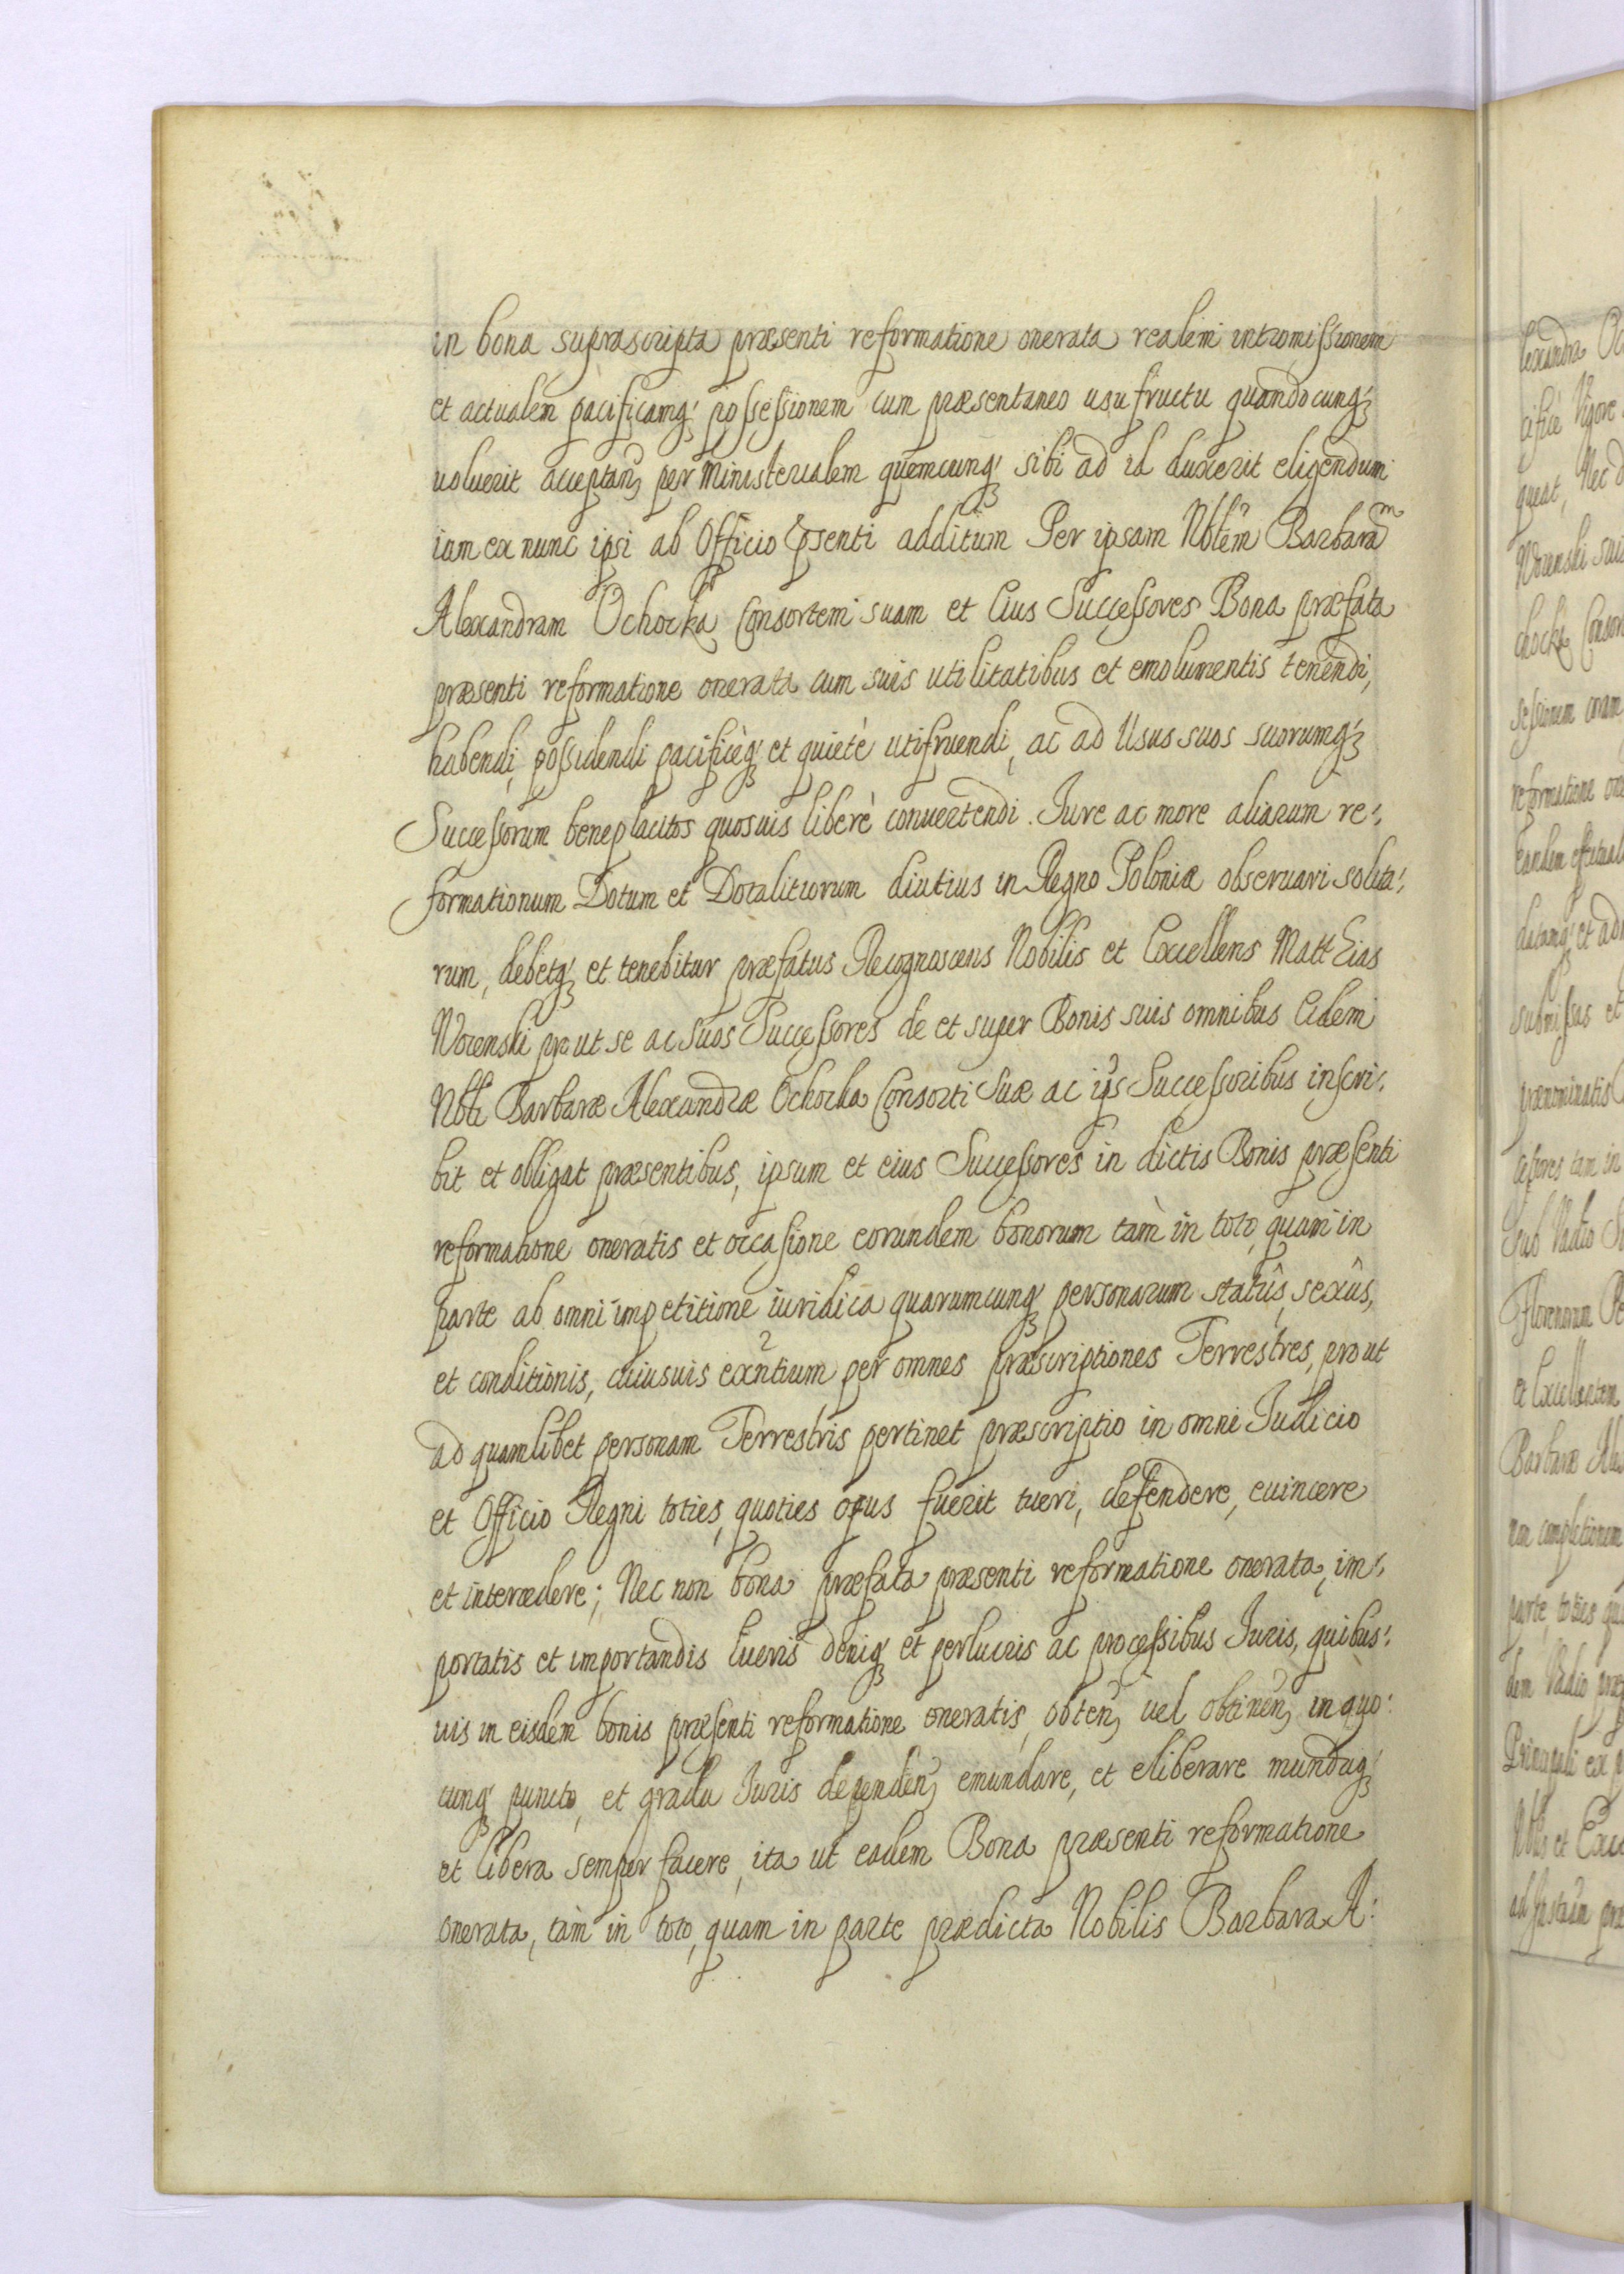 in bona suprascripta præsenti reformatione onerata realem intromissionem
et actualem pacificamq₃ possessionem cum præsentaneo usufructu quandocunq₃
voluerit acceptan₃ per Ministerialem quemcunq₃ sibi ad id duxerit eligendum
iam ex nunc ipsi ab Officio pr̃senti additum Per ipsam Nblem̃ Barbaram
Alexandram Ochocka Consortem suam et Eius Successores Bona præfata
præsenti reformatione onerata cum suis utilitatibus et emolumentis tenendi,
habendi, possidendi pacificèq₃ et quietè utifruendi, ac ad Usus suos suorumq₃
Successorum beneplacitos quosuis liberè convertendi. Iure ac more aliarum re-
formationum Dotum et Dotalitiorum diutius in Regno Poloniæ obseruari solita-
rum, debetq₃ et tenebitur præfatus Recognoscens Nobilis et Excellens Matthias
Worenski prout se ac suos Successores de et super Bonis suis omnibus Eidem
Nbli Barbaræ Alexandræ Ochocka Consorti Suæ ac ip̃s Successoribus inscri-
bit et obligat præsentibus, ipsam et eius Successores in dictis Bonis præsenti
reformatione oneratis et occasione eorundem bonorum tàm in toto, quam in
parte ab omni impetitione iuridica quarumcunq₃ personarum statûs, sexûs,
et conditionis, cuiusuis exñtium per omnes præscriptiones Terrestres, prout
ad quamlibet personam Terrestris pertinet præscriptio in omni Iudicio
et Officio Regni toties, quoties opus fuerit tueri, defendere, euincere
et intercedere; Nec non bona præfata præsenti reformatione onerata, im-
portatis et importandis lucris deniq₃ et perlucris ac processibus Iuris, quibus-
vis in eisdem bonis præsenti reformatione oneratis, obten₃ vel obtinen₃ in quo-
cunq₃ puncto, et gradu Iuris dependen₃ emundare, et eliberare mundaq₃
et libera semper facere, ita ut eadem Bona præsenti reformatione
onerata, tàm in toto, quam in parte prædicta Nobilis Barbara A: